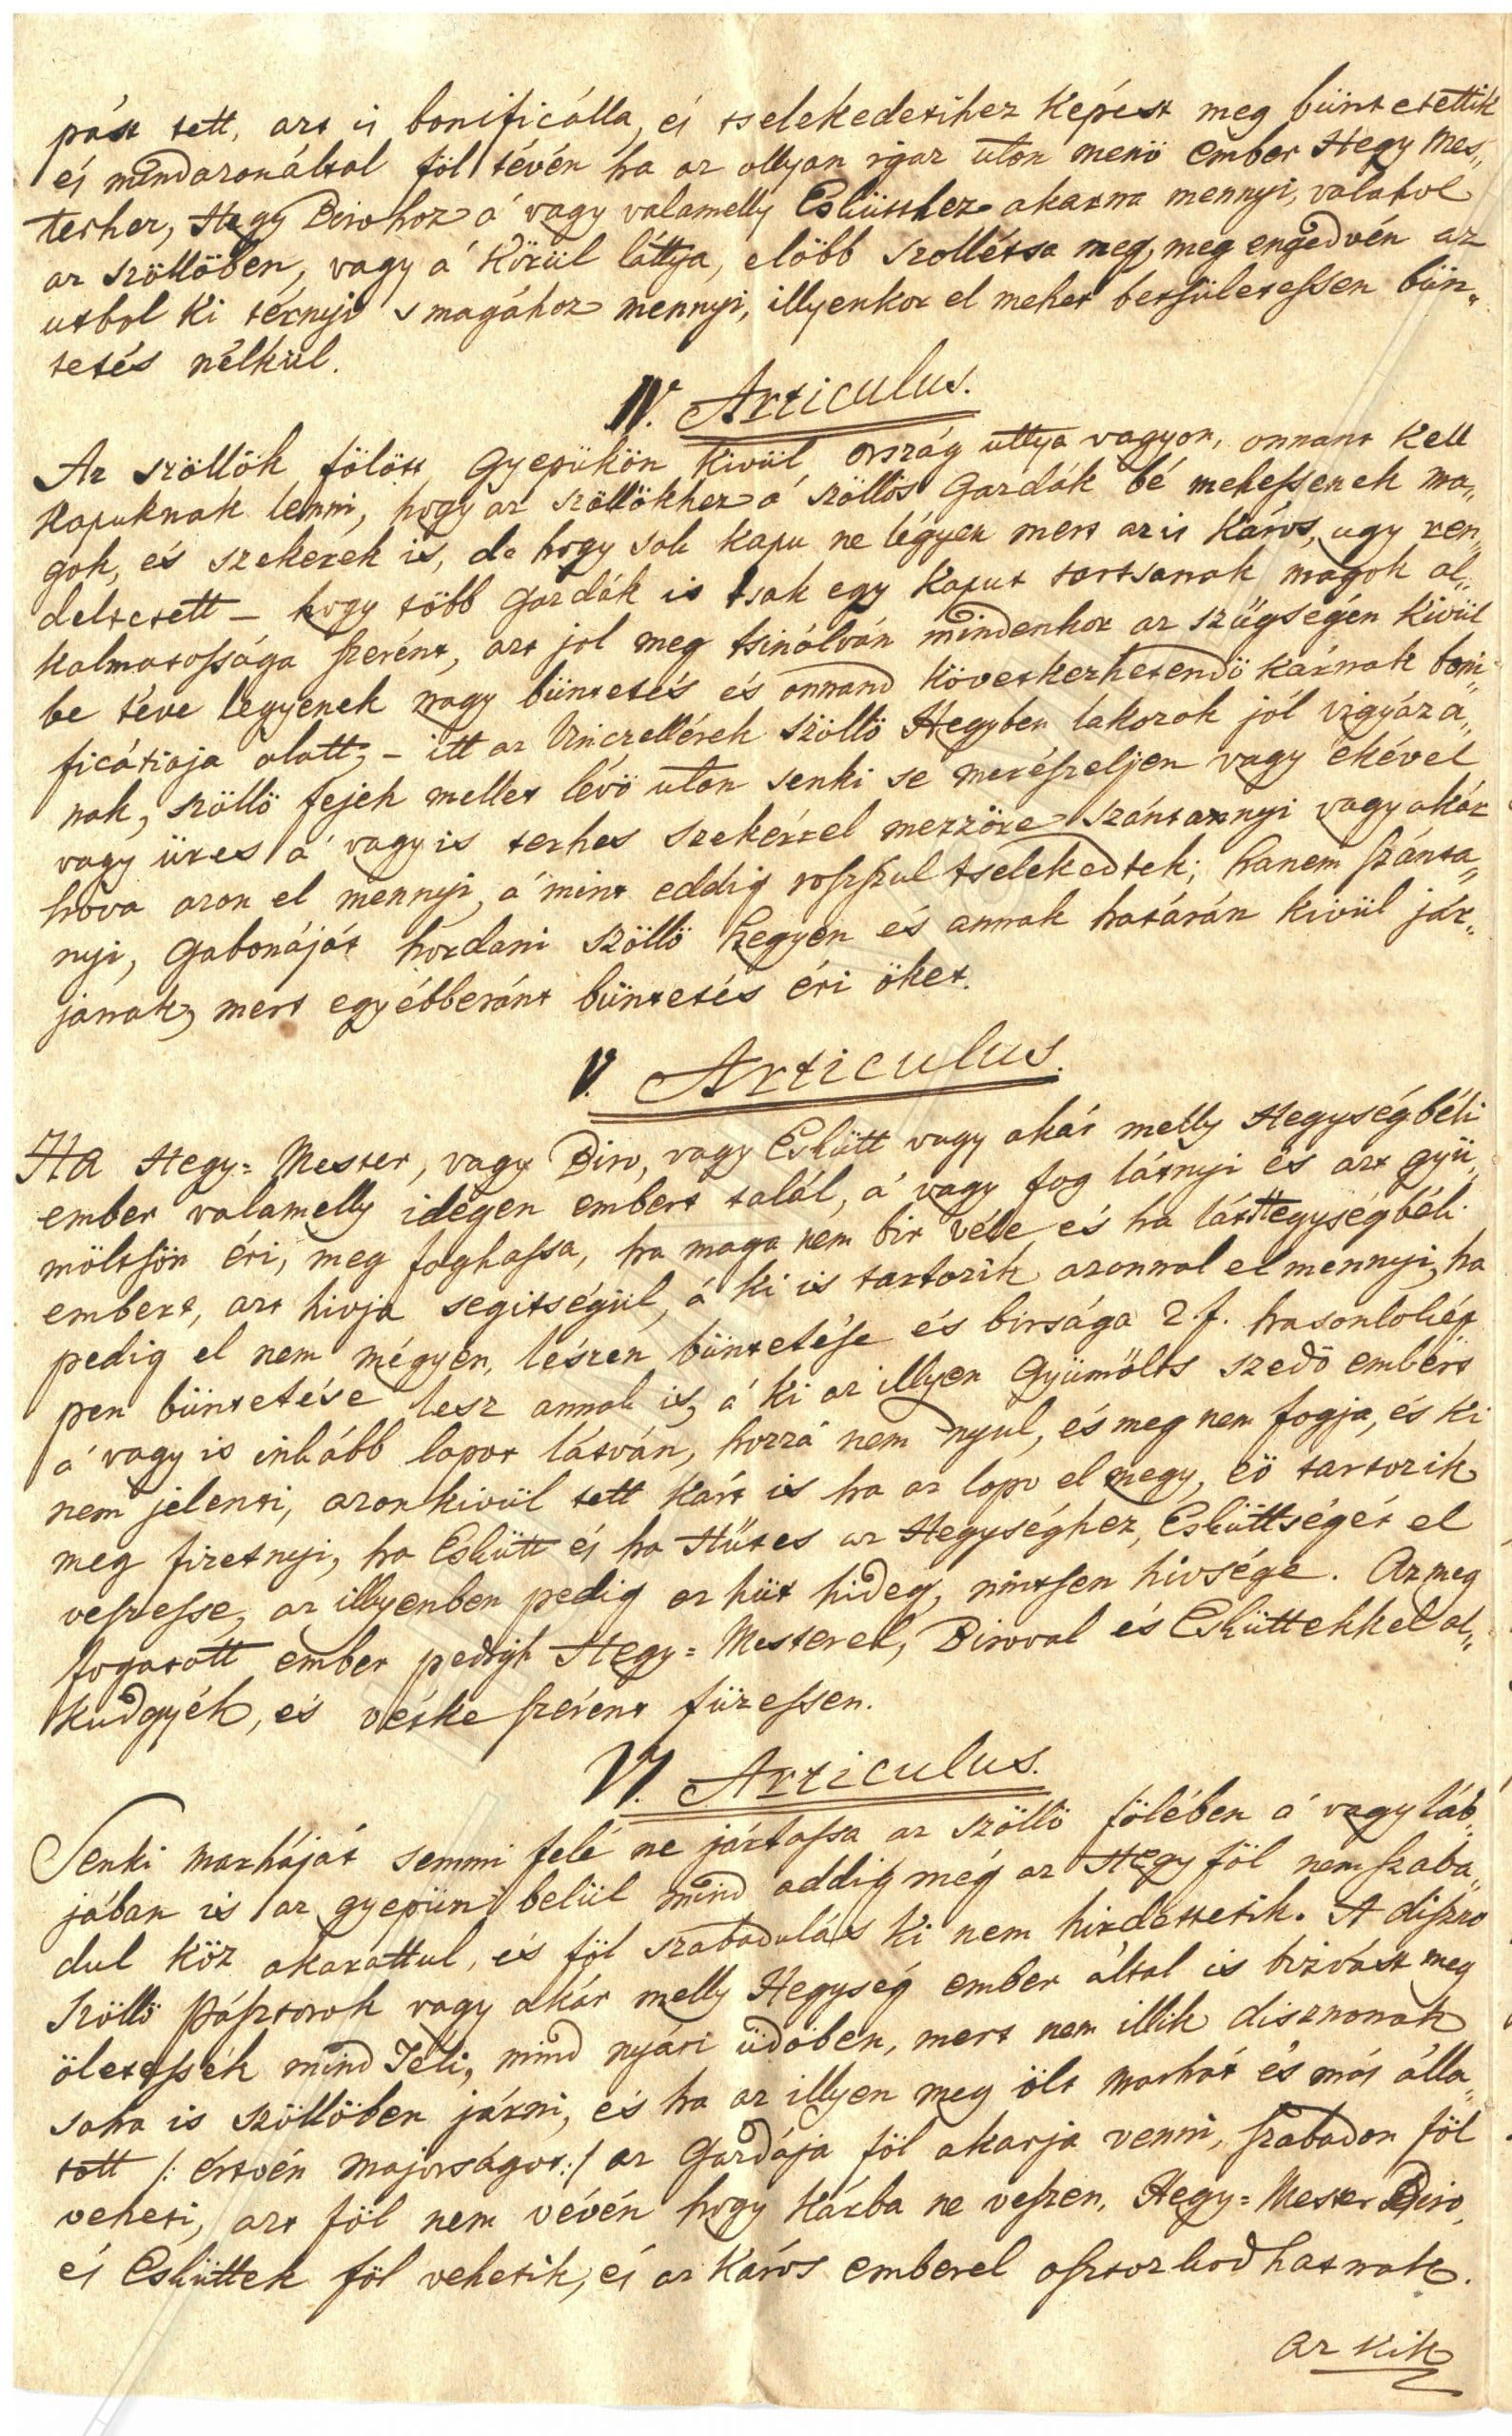 pást tett, azt is bonificálla, és tselekedetihez képest meg büntetettik
és mindazonáltal föl tévén ha az ollyan igaz uton menö ember Hegy Mes„
terhez, Hegy Birohoz á vagy valamelly Eskütthez akarna mennyi, valahol
az szöllöben, vagy á Körül láttya, elöbb szollétsa meg, meg engedvén az
utbol ki térnyi s magához mennyi, illyenkor el mehet betsületessen bün„
tetés nélkül.
IV. Articulus.
Az szöllök fölött Gyepükön kivül ország uttya vagyon, onnant kell
Kapuknak lenni, hogy az szöllökhez á szöllös Gazdák bé mehessenek ma„
gok, és szekerek is, de hogy sok kapu ne légyen mert az is káros, ugy ren„
deltetett – hogy több Gazdák is tsak egy kaput tartsanak magok al„
kalmatossága szerént, azt jol meg tsinálván mindenkor az szügségén kivül
be téve légyenek nagy büntetés és onnand következhetendö kárnak boni„
ficátioja alatt; – itt az Vinczellérek szöllö Hegyben lakozok jól vigyáza„
nak, szöllö fejek mellet lévö uton senki se merészeljen vagy ekével
vagy üres á vagy is terhes szekérrel mezzöre szántannyi vagy akár
hova azon el mennyi, á mint eddig rosszul tselekedtek; hanem szánta„
nyi, Gabonáját hordani szöllö hegyen és annak határán kivül jár„
janak, mert egyébberánt büntetés éri öket.
V. Articulus.
Ha Hegy=Mester, vagy Biro, vagy Eskütt vagy akár melly Hegységbéli
ember valamelly idegen embert talál, á vagy fog látnyi és azt gyü„
möltsön éri, meg foghassa, ha maga nem bir véle és ha lát Hegységbéli
embert, azt hivja segitségül, á ki is tartozik azonnal el mennyi, ha
pedig el nem mégyen, lészen büntetése és birsága 2.f. hasonlokép
pen büntetése lesz annak is, á ki az illyen Gyümölts szedö embert
á vagy is inkább lopot látván, hozzá nem nyul, és meg nem fogja, és ki
nem jelenti, azon kivül tett kárt is ha az lopo el megy, eö tartozik
meg fizetnyi, ha Eskütt és ha Hütes az Hegységhez, Esküttségét el
veszesse, az illyenben pedig az hüt hideg, nintsen hivsége. Az meg
fogatott ember pedigh Hegy=Mesterel, Biroval és Esküttekkel al„
kudgyék, és vétke szerént fizessen.
VI. Articulus.
Senki marháját semmi felé ne jártassa az szöllö fölében á vagy láb„
jában is az gyepün belül mind addig még az Hegy föl nem szaba„
dul köz akarattul, és föl szabadulás ki nem hirdettetik. A diszno
Szöllö Pásztorok vagy akár melly Hegység ember által is bizvást meg
öletessék mind Téli, mind nyári üdöben, mert nem illik disznonak
soha is szöllöben járni, és ha az illyen meg ölt marhát és más álla„
tott /: értvén majorságot :/ az Gazdája föl akarja venni, szabadon föl
veheti, azt föl nem vévén hogy kárba ne veszen, Hegy=Mester Biro,
és Esküttek föl vehetik, és az Káros emberel osztozkodhatnak.
az kik